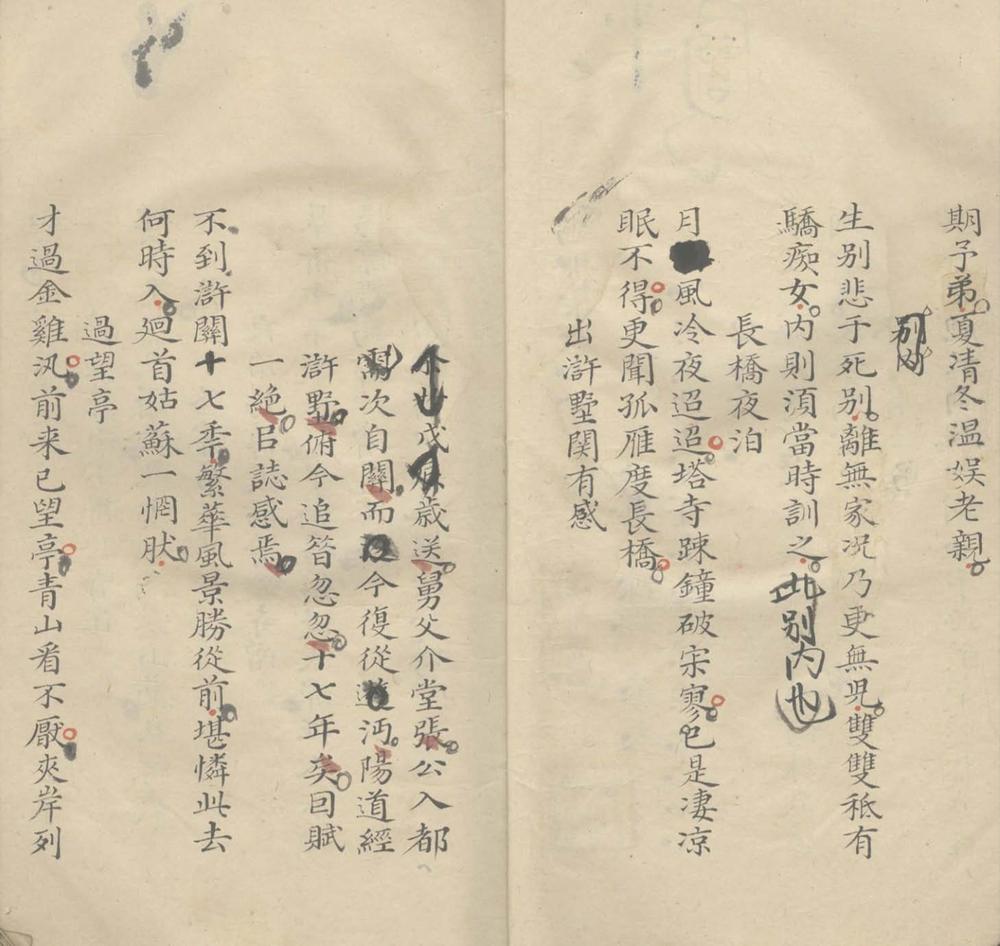 期予弟夏清冬溫娯老親
別內
生別悲于死別離無家况乃更無兒雙雙秪有
驕痴女內則湏當時訓之此別內也
長橋夜泊
月風冷夜迢迢塔寺踈鐘破宋寥已是淒凉
眠不得更聞孤雁度長橋
出滸墅関有感
戊歲送舅父介堂張公入都
需次自關而今復從沔陽道經
滸墅俯今追昝忽忽十七年矣囙賦
一絕㠯誌感焉
不到滸關十七秊繁華風景勝從前堪憐此去
何時入廻首姑蘇一惘肰
過望亭
才過金雞汛前来已望亭青山看不厭夾岸列